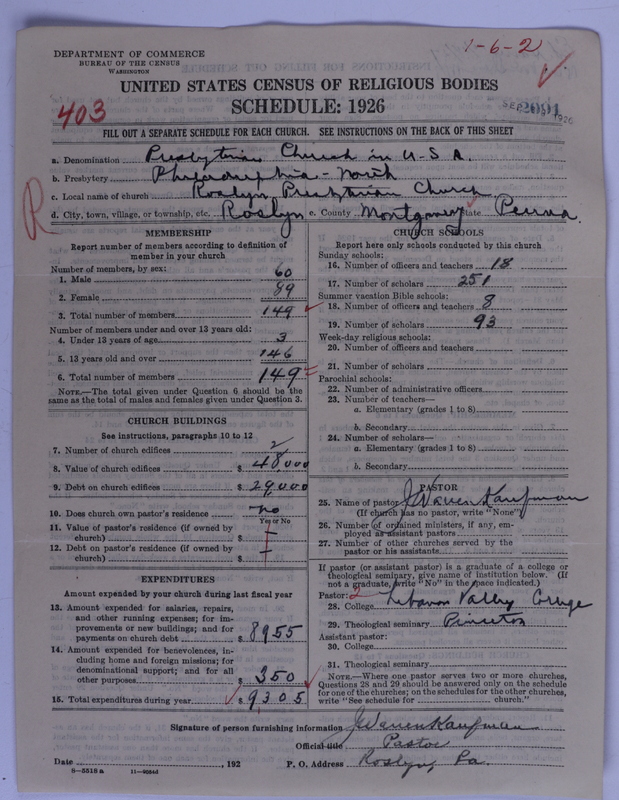 1-6-2
DEPARTMENT OF COMMERCE
BUREAU OF THE CENSUS
WASHINGTON
UNITED STATES CENSUS OF RELIGIOUS BODIES
SCHEDULE: 1926
403
FILL OUT A SEPARATE SCHEDULE FOR EACH CHURCH. SEE INSTRUCTIONS ON THE BACK OF THIS SHEET
a. Denomination Presbyterian Church in U.S.A.
b. Presbytery Philadelphia - North
c. Local name of church Roslyn Presbyterian Church
R
d. City, town, village, or township, etc. Roslyn e. County Montgomery State Penna.
MEMBERSHIP
Report number of members according to definition of
member in your church
Number of members, by sex:
1. Male 60
2. Female 89
3. Total number of members 149
Number of members under and over 13 years old:
4. Under 13 years of age 3
5. 13 years old and over 146
6. Total number of members 149
NOTE.—The total given under Question 6 should be the
same as the total of males and females given under Question 3.
CHURCH BUILDINGS
See instructions, paragraphs 10 to 12
7. Number of church edifices 2
8. Value of church edifices $ 48,000
9. Debt on church edifices $ 29,000
10. Does church own pastor's residence? no
Yes or No
11. Value of pastor's residence (if owned by
church) $
12. Debt on pastor's residence (if owned by
church) $
EXPENDITURES
Amount expended by your church during last fiscal year
13. Amount expended for salaries, repairs,
and other running expenses; for im-
provements or new buildings; and for
payments on church debt $ 8955
14. Amount expended for benevolences, in-
cluding home and foreign missions; for
denominational support; and for all
other purposes $ 350
15. Total expenditures during year $ 9305
CHURCH SCHOOLS
Report here only schools conducted by this church
Sunday schools:
16. Number of officers and teachers 18
17. Number of scholars 251
Summer vacation Bible schools:
18. Number of officers and teachers 8
19. Number of scholars 93
Week-day religious schools:
20. Number of officers and teachers
21. Number of scholars
Parochial schools:
22. Number of administrative officers
23. Number of teachers—
a. Elementary (grades 1 to 8)
b. Secondary
24. Number of scholars—
a. Elementary (grades 1 to 8)
b. Secondary
PASTOR
25. Name of pastor J Warren Kaufman
(If church has no pastor, write "None")
26. Number of ordained ministers, if any, em-
ployed as assistant pastors
27. Number of other churches served by the
pastor or his assistants
If pastor (or assistant pastor) is a graduate of a college or
theological seminary, give name of institution below. (If
not a graduate, write "No" in the space indicated.)
Pastor: 2
28. College Lebanon Valley College
29. Theological seminary Princeton
Assistant pastor:
30. College
31. Theological seminary
NOTE.—Where one pastor serves two or more churches,
Questions 28 and 29 should be answered only on the schedule
for one of the churches; on the schedules for the other churches,
write "See schedule for church."
Signature of person furnishing information J Warren Kaufman
Official title Pastor
Date , 192 P. O. Address Roslyn, Pa.
8—5518 a 11—9064d